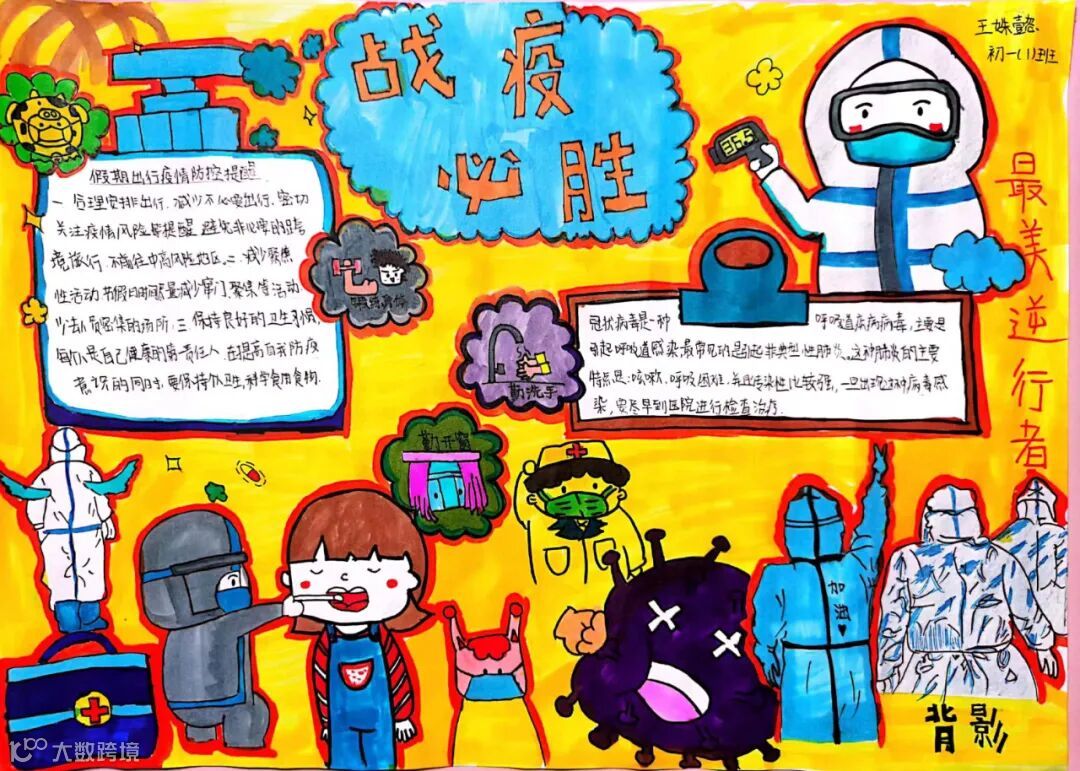 战疫
必胜
王姝懿
初一(1)班
最美逆行者
36.5
假期出行疫情防控提醒
一 合理安排出行,减少不必要出行,密切
关注疫情风险等提醒,避免非必要的跨
境旅行,不前往中高风险地区。二、减少聚集
性活动 节假日时间尽量减少串门聚集性活动
少去人员密集的场所,三 保持良好的卫生习惯,
每个人是自己健康的第一责任人,在提高自我防疫
意识的同时,要保持饮卫生,科学食用食物.
锻炼身体
勤洗手
勤开窗
冠状病毒是一种 呼吸道疾病病毒,主要是
引起呼吸道感染,最常见的是引起非典型性肺炎。这种肺炎的主要
特点是:咳嗽、呼吸困难,并且传染性比较强,一旦出现这种病毒感
染,要尽早到医院进行检查治疗.
加油
背影
大数跨境